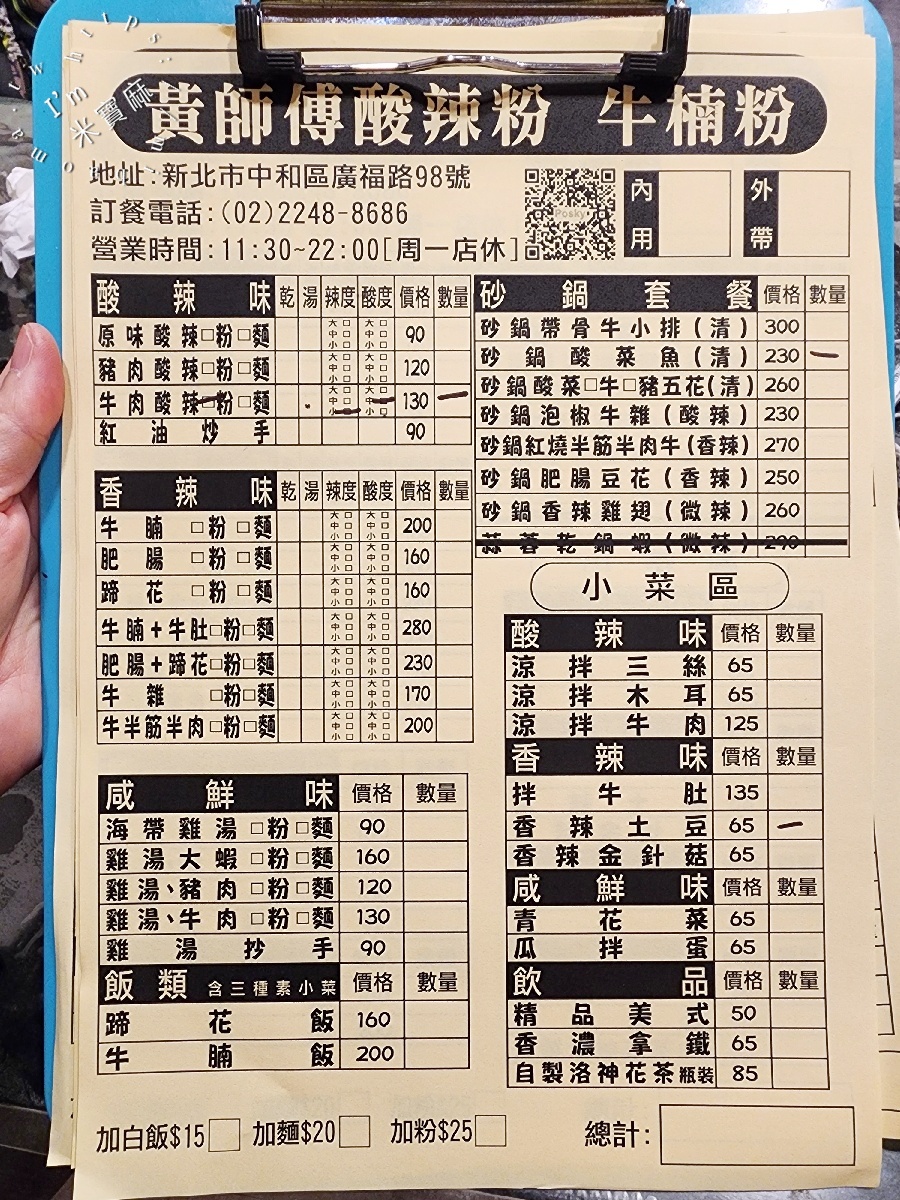 黃師傅酸辣粉 牛楠粉
地址:新北市中和區廣福路98號
訂餐電話:(02)2248-8686
營業時間:11:30~22:00[周一店休]
Posky
內用
外帶
酸辣味 乾 湯 辣度 酸度 價格 數量
原味酸辣□粉□麵 大□中□小□ 大□中□小□ 90
豬肉酸辣□粉□麵 大□中□小□ 大□中□小□ 120
牛肉酸辣□粉□麵 大□中□小□ 大□中□小□ 130 一
紅油炒手 90
香辣味 乾 湯 辣度 酸度 價格 數量
牛腩□粉□麵 大□中□小□ 大□中□小□ 200
肥腸□粉□麵 大□中□小□ 大□中□小□ 160
蹄花□粉□麵 大□中□小□ 大□中□小□ 160
牛腩+牛肚□粉□麵 大□中□小□ 大□中□小□ 280
肥腸+蹄花□粉□麵 大□中□小□ 大□中□小□ 230
牛雜□粉□麵 大□中□小□ 大□中□小□ 170
牛半筋半肉□粉□麵 大□中□小□ 大□中□小□ 200
咸鮮味 價格 數量
海帶雞湯□粉□麵 90
雞湯大蝦□粉□麵 160
雞湯、豬肉□粉□麵 120
雞湯、牛肉□粉□麵 130
雞湯抄手 90
飯類 含三種素小菜 價格 數量
蹄花飯 160
牛腩飯 200
砂鍋套餐 價格 數量
砂鍋帶骨牛小排(清) 300
砂鍋酸菜魚(清) 230 一
砂鍋酸菜□牛□豬五花(清) 260
砂鍋泡椒牛雜(酸辣) 230
砂鍋紅燒半筋半肉牛(香辣) 270
砂鍋肥腸豆花(香辣) 250
砂鍋香辣雞翅(微辣) 260
蒜蓉乾鍋蝦(微辣) 290
小菜區
酸辣味 價格 數量
涼拌三絲 65
涼拌木耳 65
涼拌牛肉 125
香辣味 價格 數量
拌牛肚 135
香辣土豆 65 一
香辣金針菇 65
咸鮮味 價格 數量
青花菜 65
瓜拌蛋 65
飲品 價格 數量
精品美式 50
香濃拿鐵 65
自製洛神花茶瓶裝 85
加白飯$15□ 加麵$20□ 加粉$25□ 總計:
I'm 米寶麻